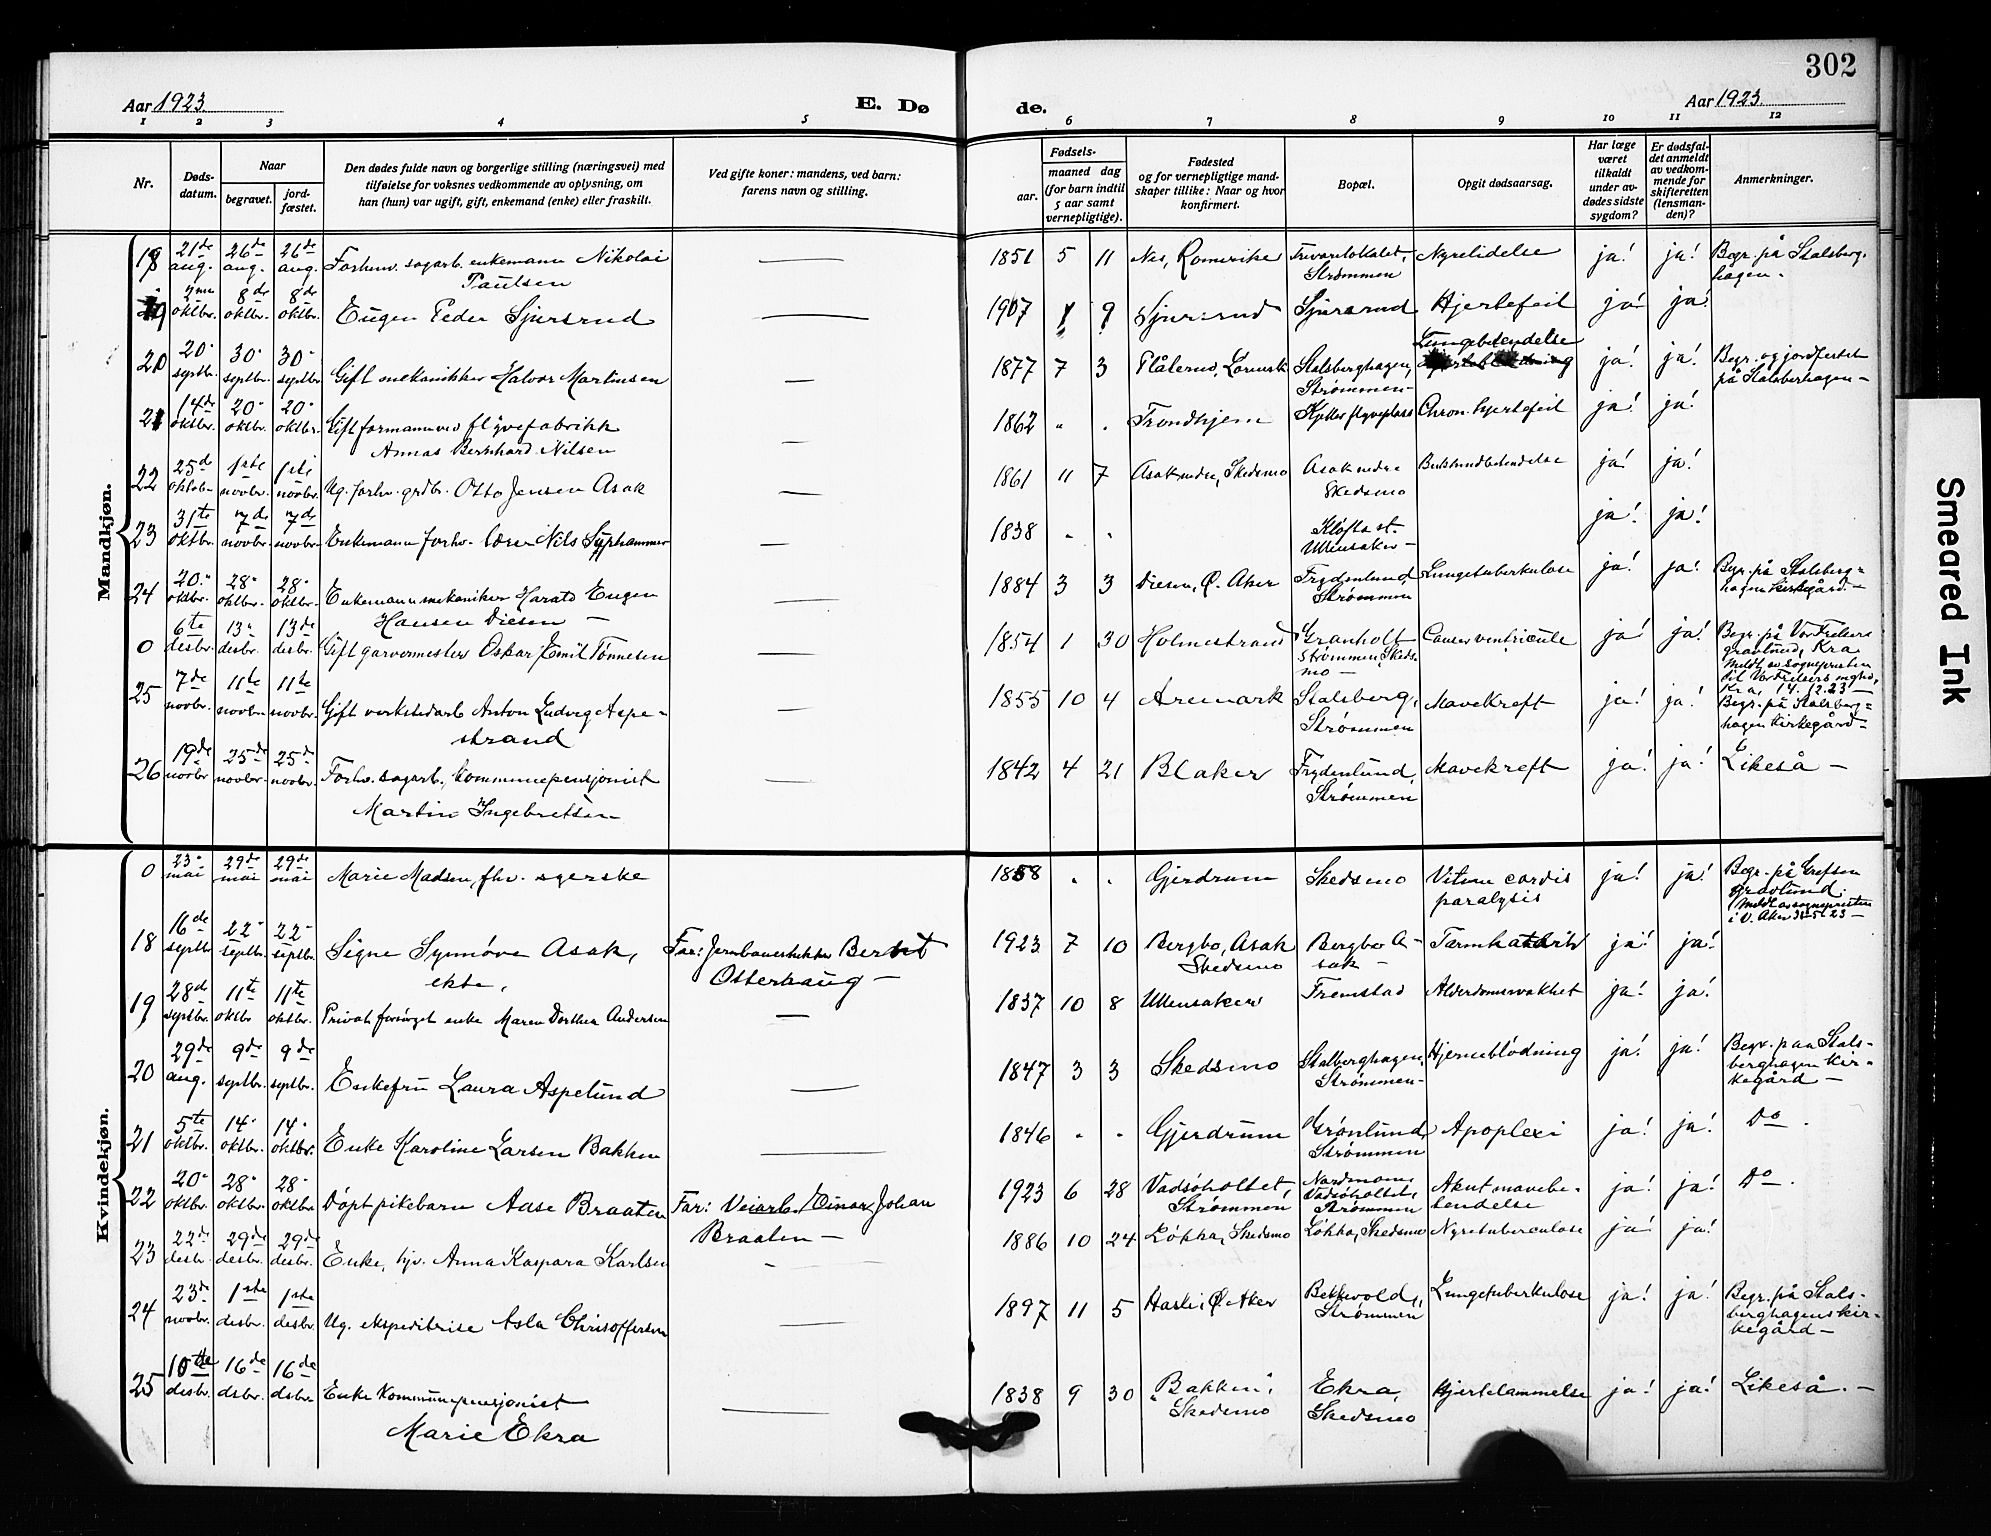 302
Aar 1923
E. Dø
de.
Aar 1923.
1 2 3 4 5 6 7 8 9 10 11 12
Nr.
Døds-
datum.
Naar
begravet.
jord-
fæstet.
Den dødes fulde navn og borgerlige stilling (næringsvei) med
tilføielse for voksnes vedkommende av oplysning, om
han (hun) var ugift, gift, enkemand (enke) eller fraskilt.
Ved gifte koner: mandens, ved barn:
farens navn og stilling.
Fødsels-
aar.
maaned dag
(for barn indtil
5 aar samt
vernepligtige).
Fødested
og for vernepligtige mand-
skaper tillike: Naar og hvor
konfirmert.
Bopæl.
Opgit dødsaarsag.
Har læge
været
tilkaldt
under av-
dødes sidste
sygdom?
Er dødsfal-
det anmeldt
av vedkom-
mende for
skifteretten
(lensman-
den)?
Anmerkninger.
Mandkjøn.
18 21de aug. 26de aug. 26de aug. Forhenv. sagarb. enkemann Nikolai Paulsen — 1851 5 11 Nes, Romerike Strømmen Nyrelidelse ja! ja! Begr. på Stalsberg-
hagen.
19 2nen oktbr. 8de oktbr. 8de oktbr. Eugen Peder Sjursrud — 1907 9 Sjursrud Sjursrud Hjertefeil ja! ja!
20 20. septbr. 30. septbr. 30. septbr. Gift mekanikker Halvor Martinsen — 1877 7 3 Flålerud, Lørensk. Stalsberghagen, Strømmen— Lungebetendelse ja! ja! Begr. og jordfestet
på Stalsberhagen—
21 14de oktbr. 20. oktbr. 20. oktbr. Gift formann ved flyvefabrikk
Annas Bernhard Nilsen — 1862 " . Trondhjem Kjeller flyveplass Chron. hjertefeil ja! ja!
22 25d oktob— 1ste novbr. 1ste novbr. Ug. forhv. grdbr. Otto Jensen Asak — 1861 11 7 Asak nedre, Skedsmo Asak nedre Skedsmo ja! ja!
23 31te oktbr. 7de novbr. 7de novbr. Enkemann forhv. lærer Nils — 1838 " " Kløfta st. Ullensaker— ja! ja!
24 20. oktbr. 28. oktbr. 28. oktbr. Enkemann mekaniker Harald Eugen
Hansen Diesen — 1884 3 3 Diesen, Ø. Aker Frydenlund, Strømmen Lungetuberkulose ja! ja! Begr. på Stalsberg=
hagen Kirkegård.—
0 6te desbr. 13. desbr. 13de desbr. Gift garvermester Oskar Emil Tønnesen — 1854 1 30 Holmestrand Granholt Strømmen, Skeds-
mo— Cancer ventricule ja! ja! Begr. på Vor Frelsers
gravlund, Kra.
Meldt av sognepresten
til Vor Frelsers mghd,
Kra, 14.12.23—
25 7de novbr. 11te novbr. 11te novbr. Gift verkstedarb. Anton Ludvig Aspe-
strand — 1855 10 4 Aremark Stalsberg, Strømmen Mavekreft ja! ja! Begr. på Stalsberg=
hagen Kirkegård—
26 19de novbr 25de novbr. 25de novbr. Forhv. sagarb., kommunepensjonist
Martin Ingebretsen — 1842 4 21 Blaker Frydenlund, Strømmen Mavekreft ja! ja! Likeså —
Kvindekjøn.
0 23. mai 29de mai 29de mai Marie Madsen, fhv. syerske 1858 " . Gjerdrum Skedsmo Vitium cordis
paralysis ja! ja! Begr. på Grefsen
gravlund.
Meldt av sognepresten
i V. Aker 31-5-23—
18 16de septbr. 22. septbr. 22. septbr. Signe Synnøve Asak,
ekte, Far: Jernbanetelekker
Osterhaug — 1923 7 10 Bergbo, Asak
Skedsmo Bergbo A-
sak — Tarmkatarrh ja! ja!
19 28d septbr. 11te oktbr 11te oktbr. Privat forsørget enke Maren Dorthea Andersen — 1837 10 8 Ullensaker Fremstad Alderdomssvakhet ja! ja!
20 29de aug. 9de septbr. 9de septbr. Enkefru Laura Aspelund — 1847 3 3 Skedsmo Stalberghagen, Strømmen— Hjerneblødning ja! ja! Begr. paa Stals-
berghagen Kir-
kegård —
21 5te oktbr. 14. oktbr. 14. oktbr. Enke Karoline Larsen Bakken — 1846 " . Gjerdrum Grønlund, Strømmen Apoplexi ja! ja! Do.
22 20. oktbr. 28. oktbr. 28. oktbr. Døpt pikebarn Aase Braaten Far: Veiarb. Einar Johan
Braaten — 1923 6 28 Vadsøholtet,
Strømmen Vadsøholtet,
Strømmen Akut mavebe-
tendelse ja! ja! Do.
23 22de desbr. 29de desbr. 29de desbr. Enke, hjv. Anna Kaspara Karlsen — 1886 10 24 Løkka, Skedsmo Løkka, Skedsmo Nyretuberculose ja! ja!
24 23de novbr. 1ste desbr. 1ste desbr. Ug. ekspeditrise Asla Christoffersen — 1897 11 5 Hasle, Ø. Aker Bekkevold, Strømmen Lungetuberkulose ja! ja! Begr. på Stals-
berghagens kir-
kegård—
25 10de desbr. 16de dsbr. 16de dsbr. Enke Kommunepensjonist
Marie Ekra — 1838 9 30 "Bakken",
Skedsmo Ekra,
Skedsmo Hjertelammelse ja! ja! Likeså. —
Smeared Ink